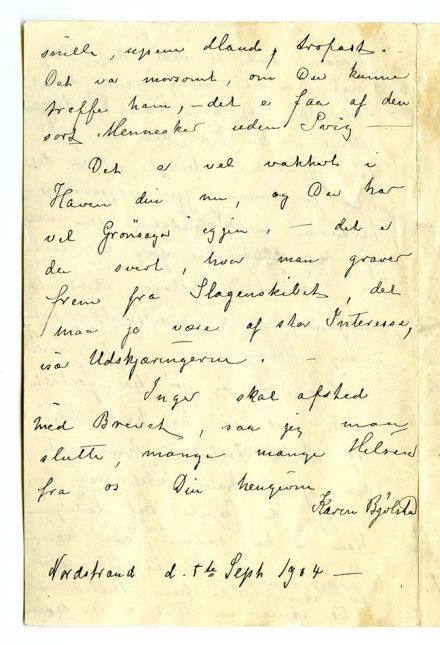 snille, ugene dland, trofast.
Det va morsomt, om Du kunne
treffe ham, – det e faa af den
sort Mennesker uden Svig –
Det er vel vakkert i
Haven din nu, og Du har
vel Grønsager iggjen, – det er
du svert, hvor man graver
frem fra Slagenskibet, det
maa jo være af stor Interesse,
især Udskjæringerne. –
Inger skal afsted
med Brevet, saa jeg maa
slutte, mange mange Hilsener
fra os Din hengivne
Karen
Nordstrand d. 5te Septb 1904 –